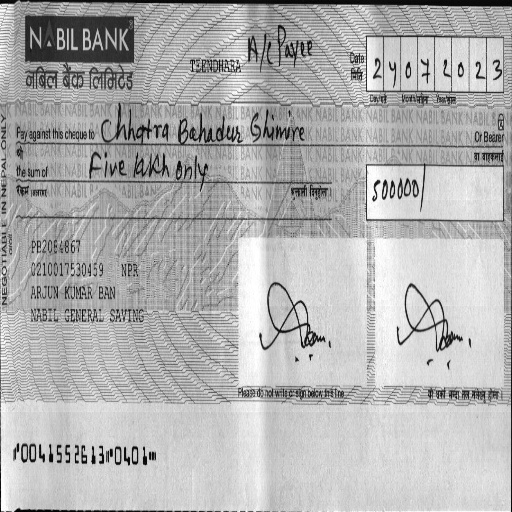 NABIL BANK
नबिल बैंक लिमिटेड
TEENDHARA
A/C Payee
Date
मिति
24072023
Pay against this cheque to Chhatra Bahadur Ghimire
Or Bearer
को
वा वाहकलाई
the sum of Five lakh only
रकम
भुक्तानी दिनुहोला
500000/
NEGOTIABLE IN NEPAL ONLY
PB2084867
0210017530459 NPR
ARJUN KUMAR BAN
NABIL GENERAL SAVING
Please do not write or sign below this line
⑈0041552613⑈0401⑈